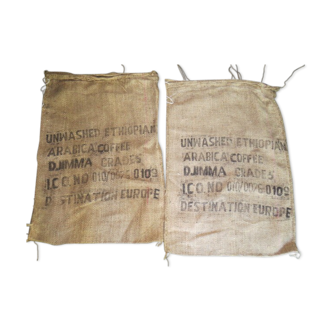 UNWASHED ETHIOPIAN
ARABICA COFFEE
DJIMMA GRADE5
I.C.O. NO 010/0
DESTINATION EUROPE
UNWASHED ETHIOPIAN
ARABICA COFFEE
DJIMMA GRADES
I.C.O. NO 010/0
DESTINATION EUROPE